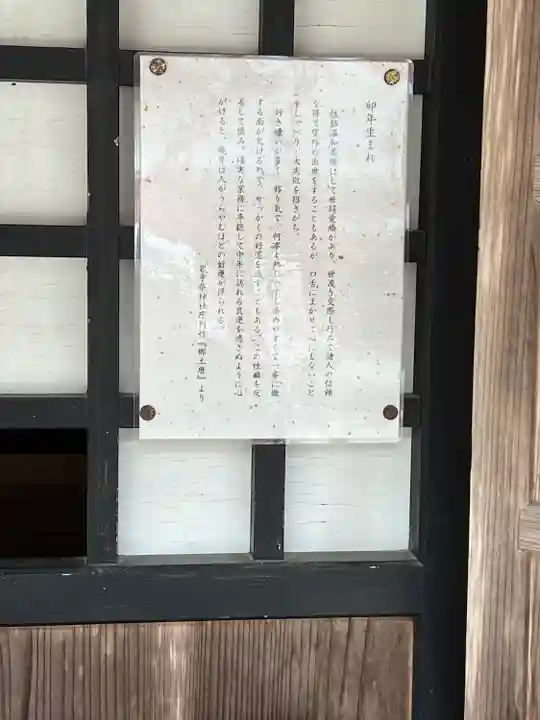 卯年生まれ
性格温和柔順にして世辞愛嬌があり、世渡り交際も巧みで諸人の信頼
を得て望外の出世をすることもあるが、口舌にまかせ、心にもないこと
をしゃべり、大失敗を招きがち。
好き嫌いが多く、移り気で、何事も熱し さめやすくて一事に徹
する面が欠けるので、せっかくの好運を逃すこともある。この性癖を反
省して慎み、確実な業務に専従して中年に訪れる良運を逃さぬように心
がけると、晩年は人がうらやむほどの好運が得られる。
岩手県神社庁刊行『郷土暦』より